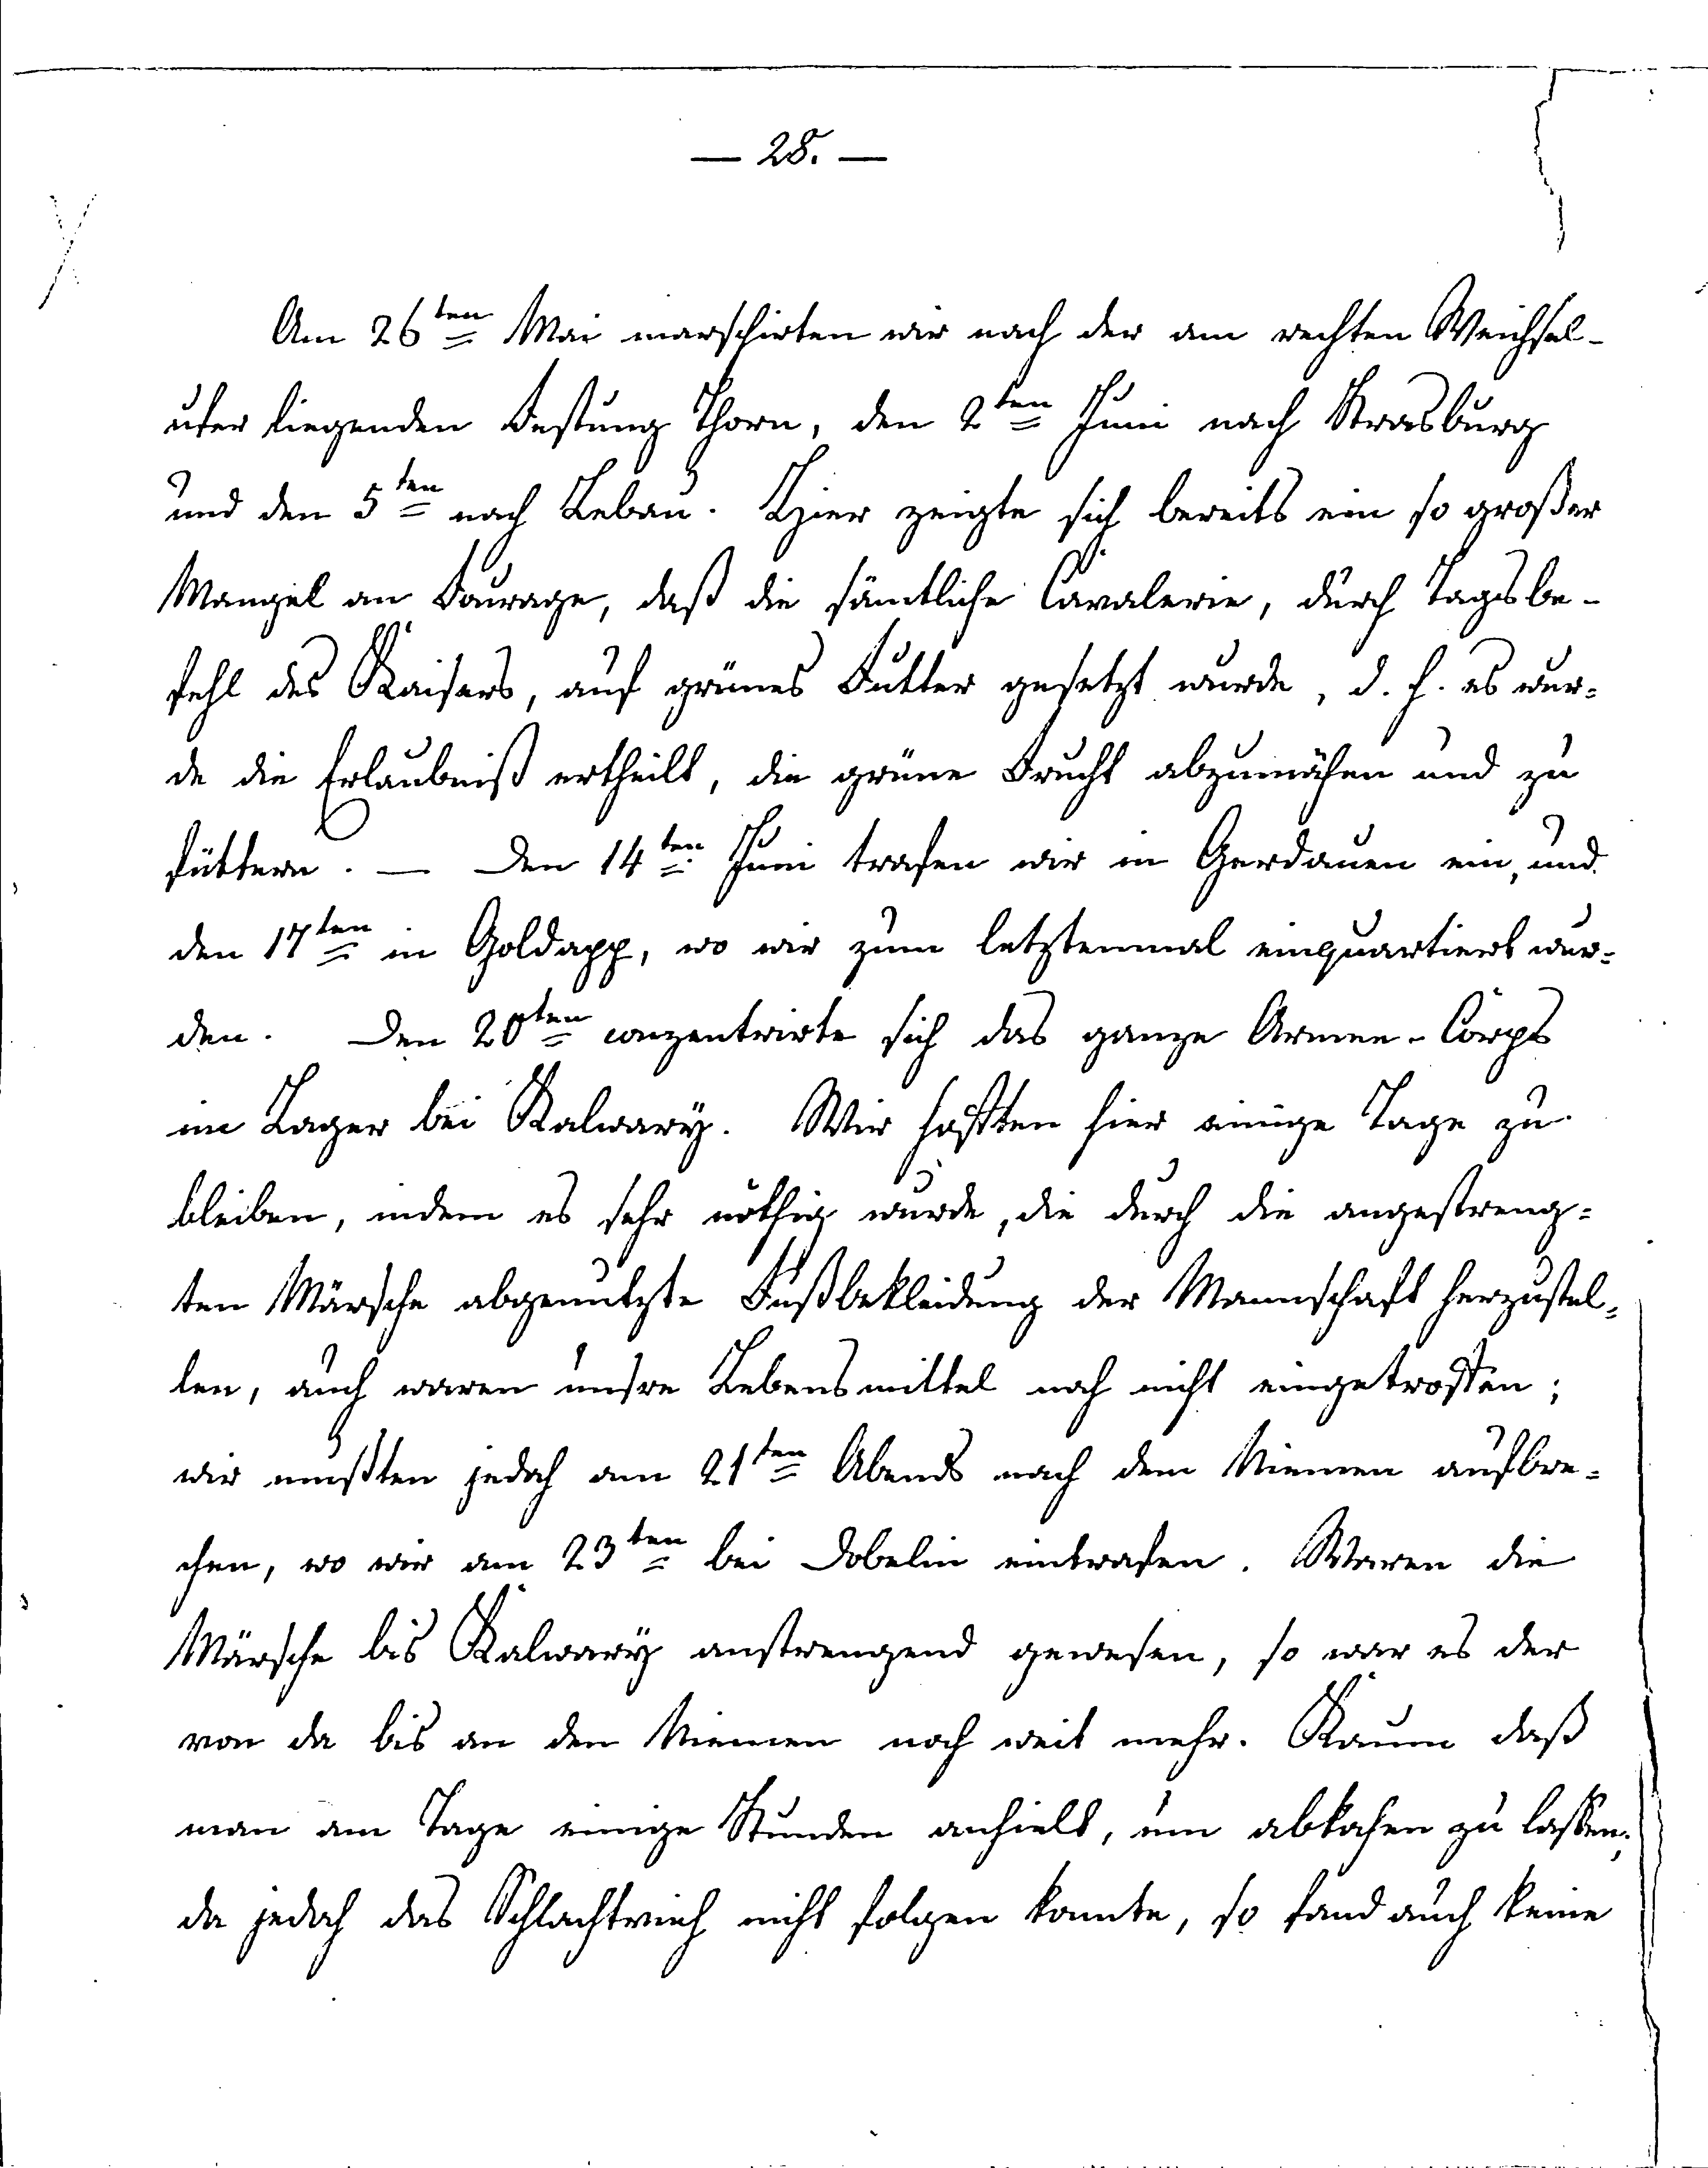 — 28. —
Am 26ten Mai marschirten wir nach der am rechten Weichsel-
ufer liegenden Festung Thorn, den 2ten Juni nach Strasburg
und den 5ten nach Lebau. Hier zeigte sich bereits ein so großer
Mangel an Fourage, daß die sämtliche Cavalerie, durch Tagsbe-
fehl des Kaisers, auf grünes Futter gesetzt wurde, d. h. es wur-
de die Erlaubniß ertheilt, die grüne Frucht abzumähen und zu
füttern. — Den 14ten Juni trafen wir in Gerdauen ein, und
den 17ten in Goldapp, wo wir zum letztenmal einquartiert wur-
den. Den 20ten conzentrirte sich das ganze Armee-Corps
im Lager bei Kalwary. Wir hofften hier einige Tage zu
bleiben, indem es sehr nöthig wurde, die durch die angestreng-
ten Märsche abgenutzte Fußbekleidung der Mannschaft herzustel-
len, auch waren unsre Lebensmittel noch nicht eingetroffen;
wir mußten jedoch am 21ten Abends nach dem Niemen aufbre-
chen, wo wir am 23ten bei Dobelin eintrafen. Waren die
Märsche bis Kalwary anstrengend gewesen, so war es der
von da bis an den Niemen noch weit mehr. Kaum daß
man am Tage einige Stunden anhielt, um abkochen zu lassen;
da jedoch das Schlachtvieh nicht folgen konnte, so fand auch keine